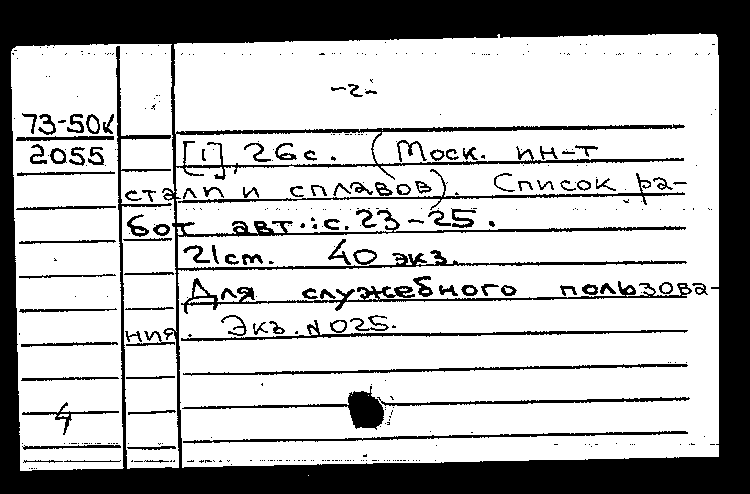 -2-
73-50к
2055 [1], 26 с. (Моск. ин-т
стали и сплавов). Список ра-
бот авт.: с. 23-25.
21 см. 40 экз.
Для служебного пользова-
ния. Экз. № 025.
4